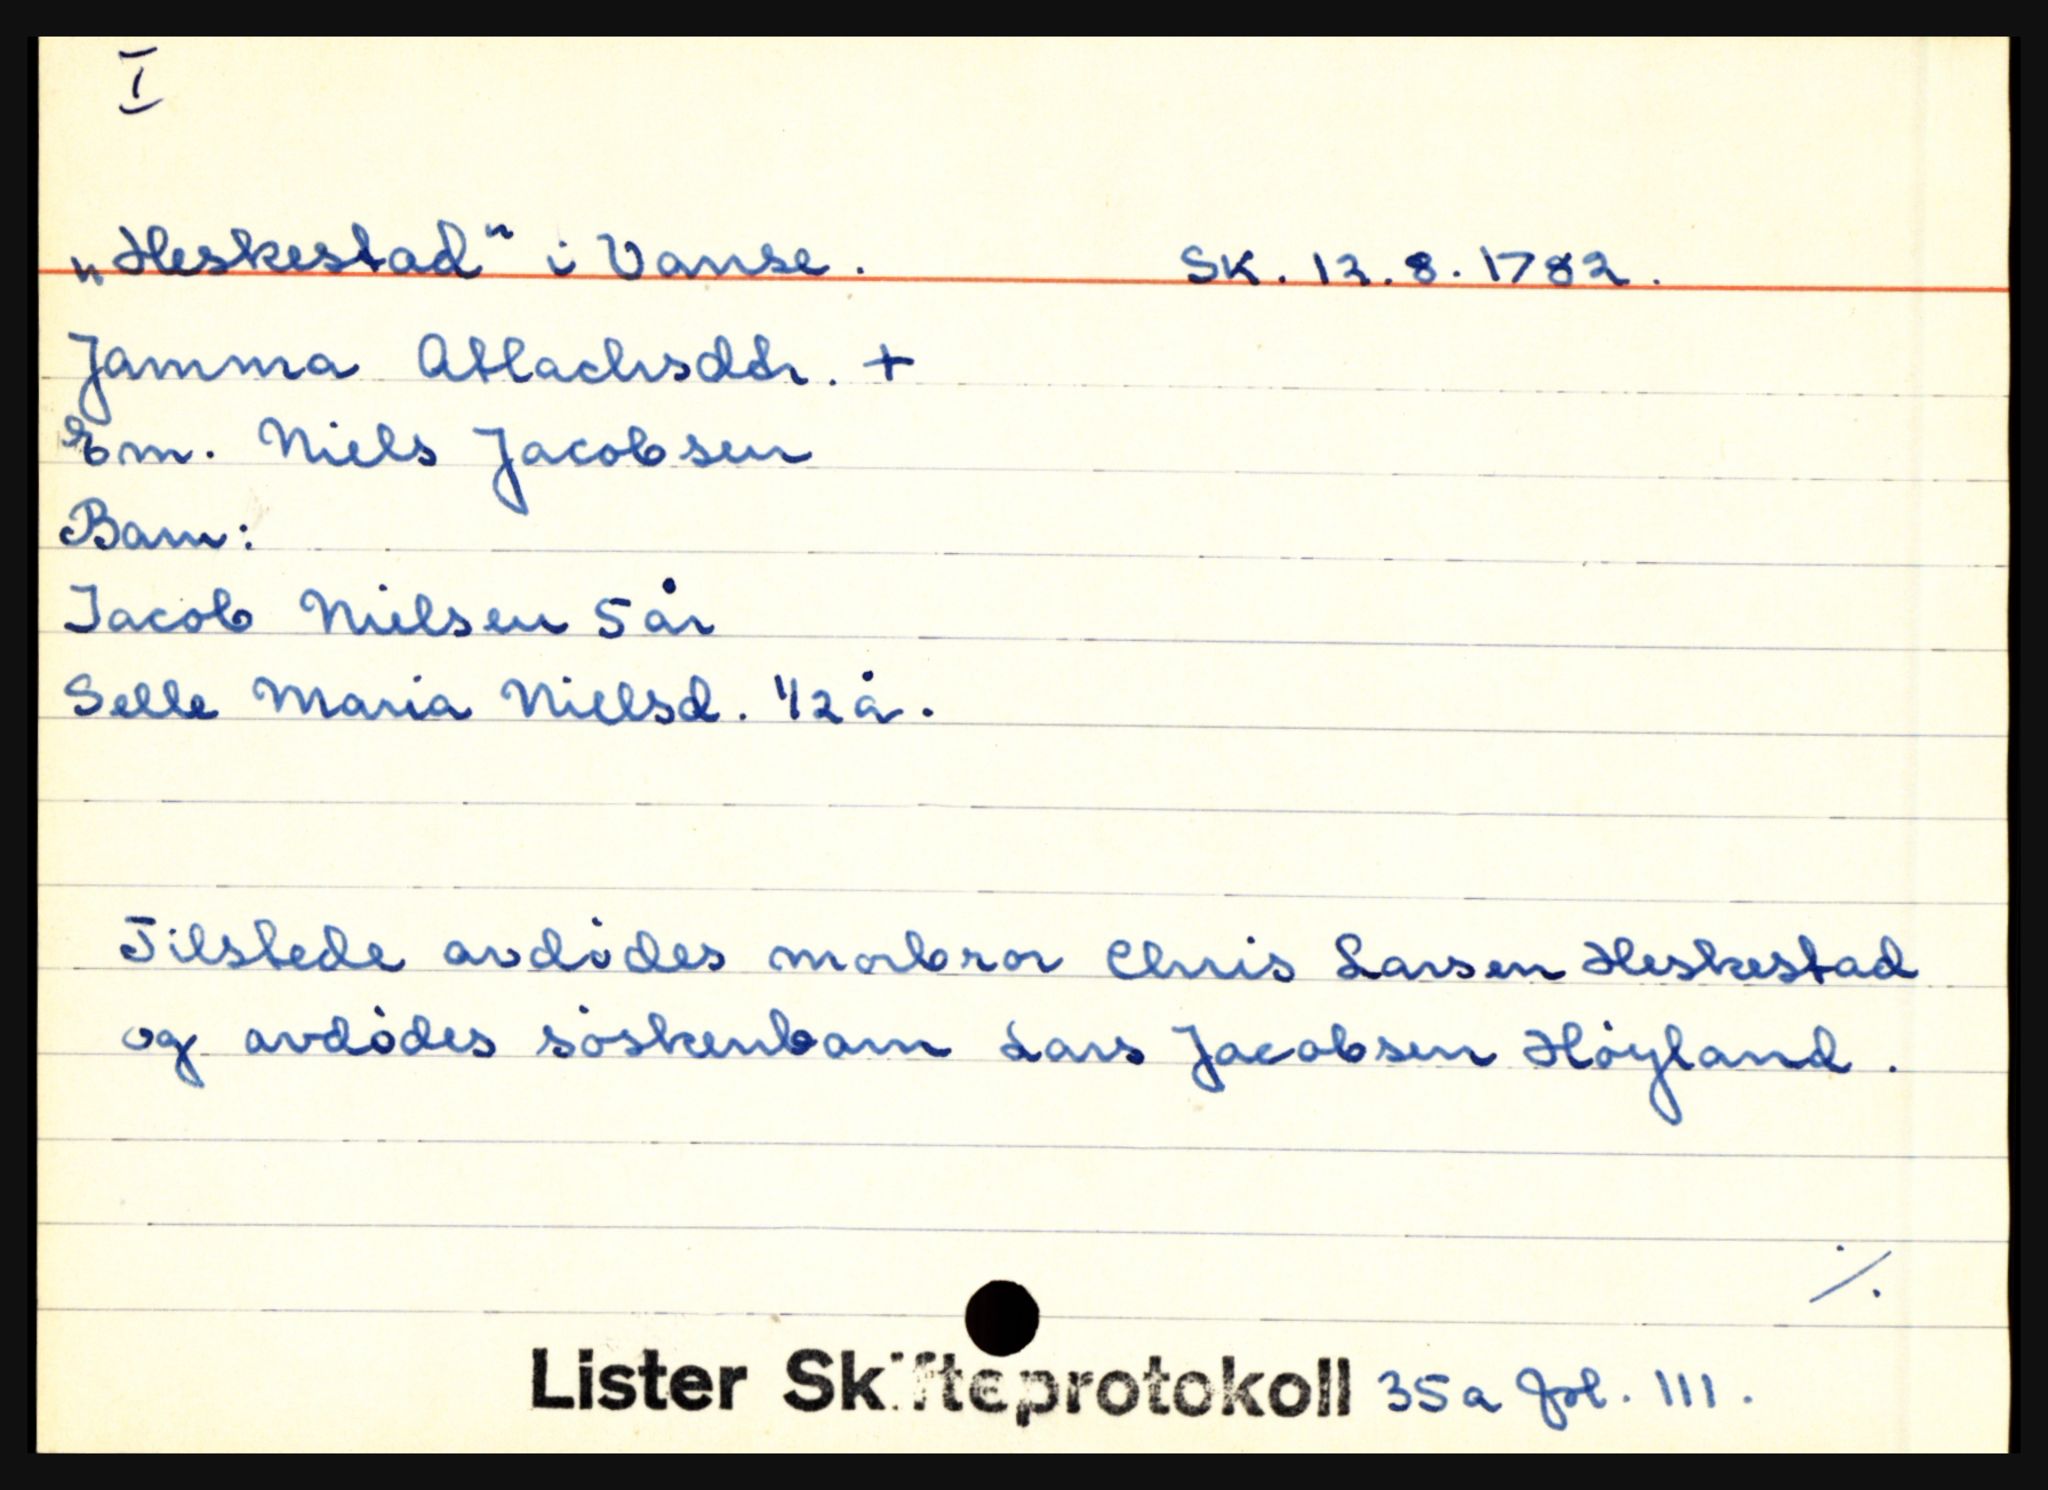 I
„Heskestad" i Vanse. Sk. 12.8.1782.
Jamma Atlachsdtr. +
Em. Niels Jacobsen
Barn:
Jacob Nielsen 5 år
Selle Maria Nielsd. 1/2 år.
Tilstede avdødes morbror Chris Larsen Heskestad
og avdødes söskenbarn Lars Jacobsen Höyland.
./.
Lister Skifteprotokoll 35a fol. 111.